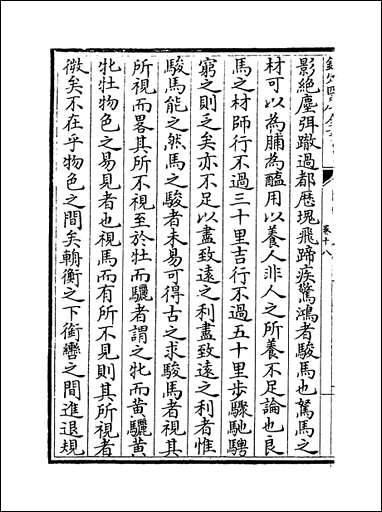 影絶塵弭蹴過都歴塊飛蹄疾驚鴻者駿馬也駑馬之
材可以為脯為醢用以養人非人之所養不足論也良
馬之材師行不過三十里吉行不過五十里步驟馳騁
窮之則乏矣亦不足以盡致遠之利盡致遠之利者惟
駿馬能之然馬之駿者未易可得古之求駿馬者視其
所視而畧其所不視至於牡而驪者謂之牝而黄驪黄
牝牡物色之易見者也視馬而有所不見則其所視者
微矣不在乎物色之間矣輈衡之下銜轡之間進退規